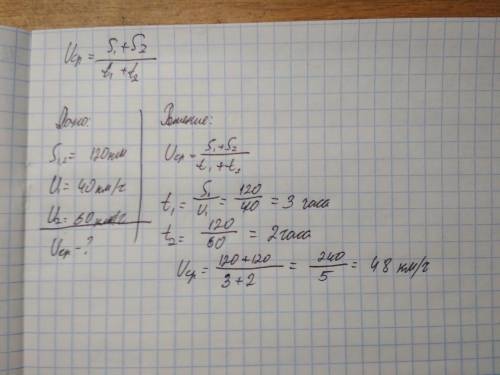 υср = S₁+S₂ / t₁+t₂
Дано:
S₁,₂ = 120км
υ₁ = 40км/ч
υ₂ = 60км/ч
υср - ?
Решение:
υср = S₁+S₂ / t₁+t₂
t₁ = S₁ / υ₁ = 120 / 40 = 3 часа
t₂ = 120 / 60 = 2 часа
υср = 120+120 / 3+2 = 240 / 5 = 48 км/ч